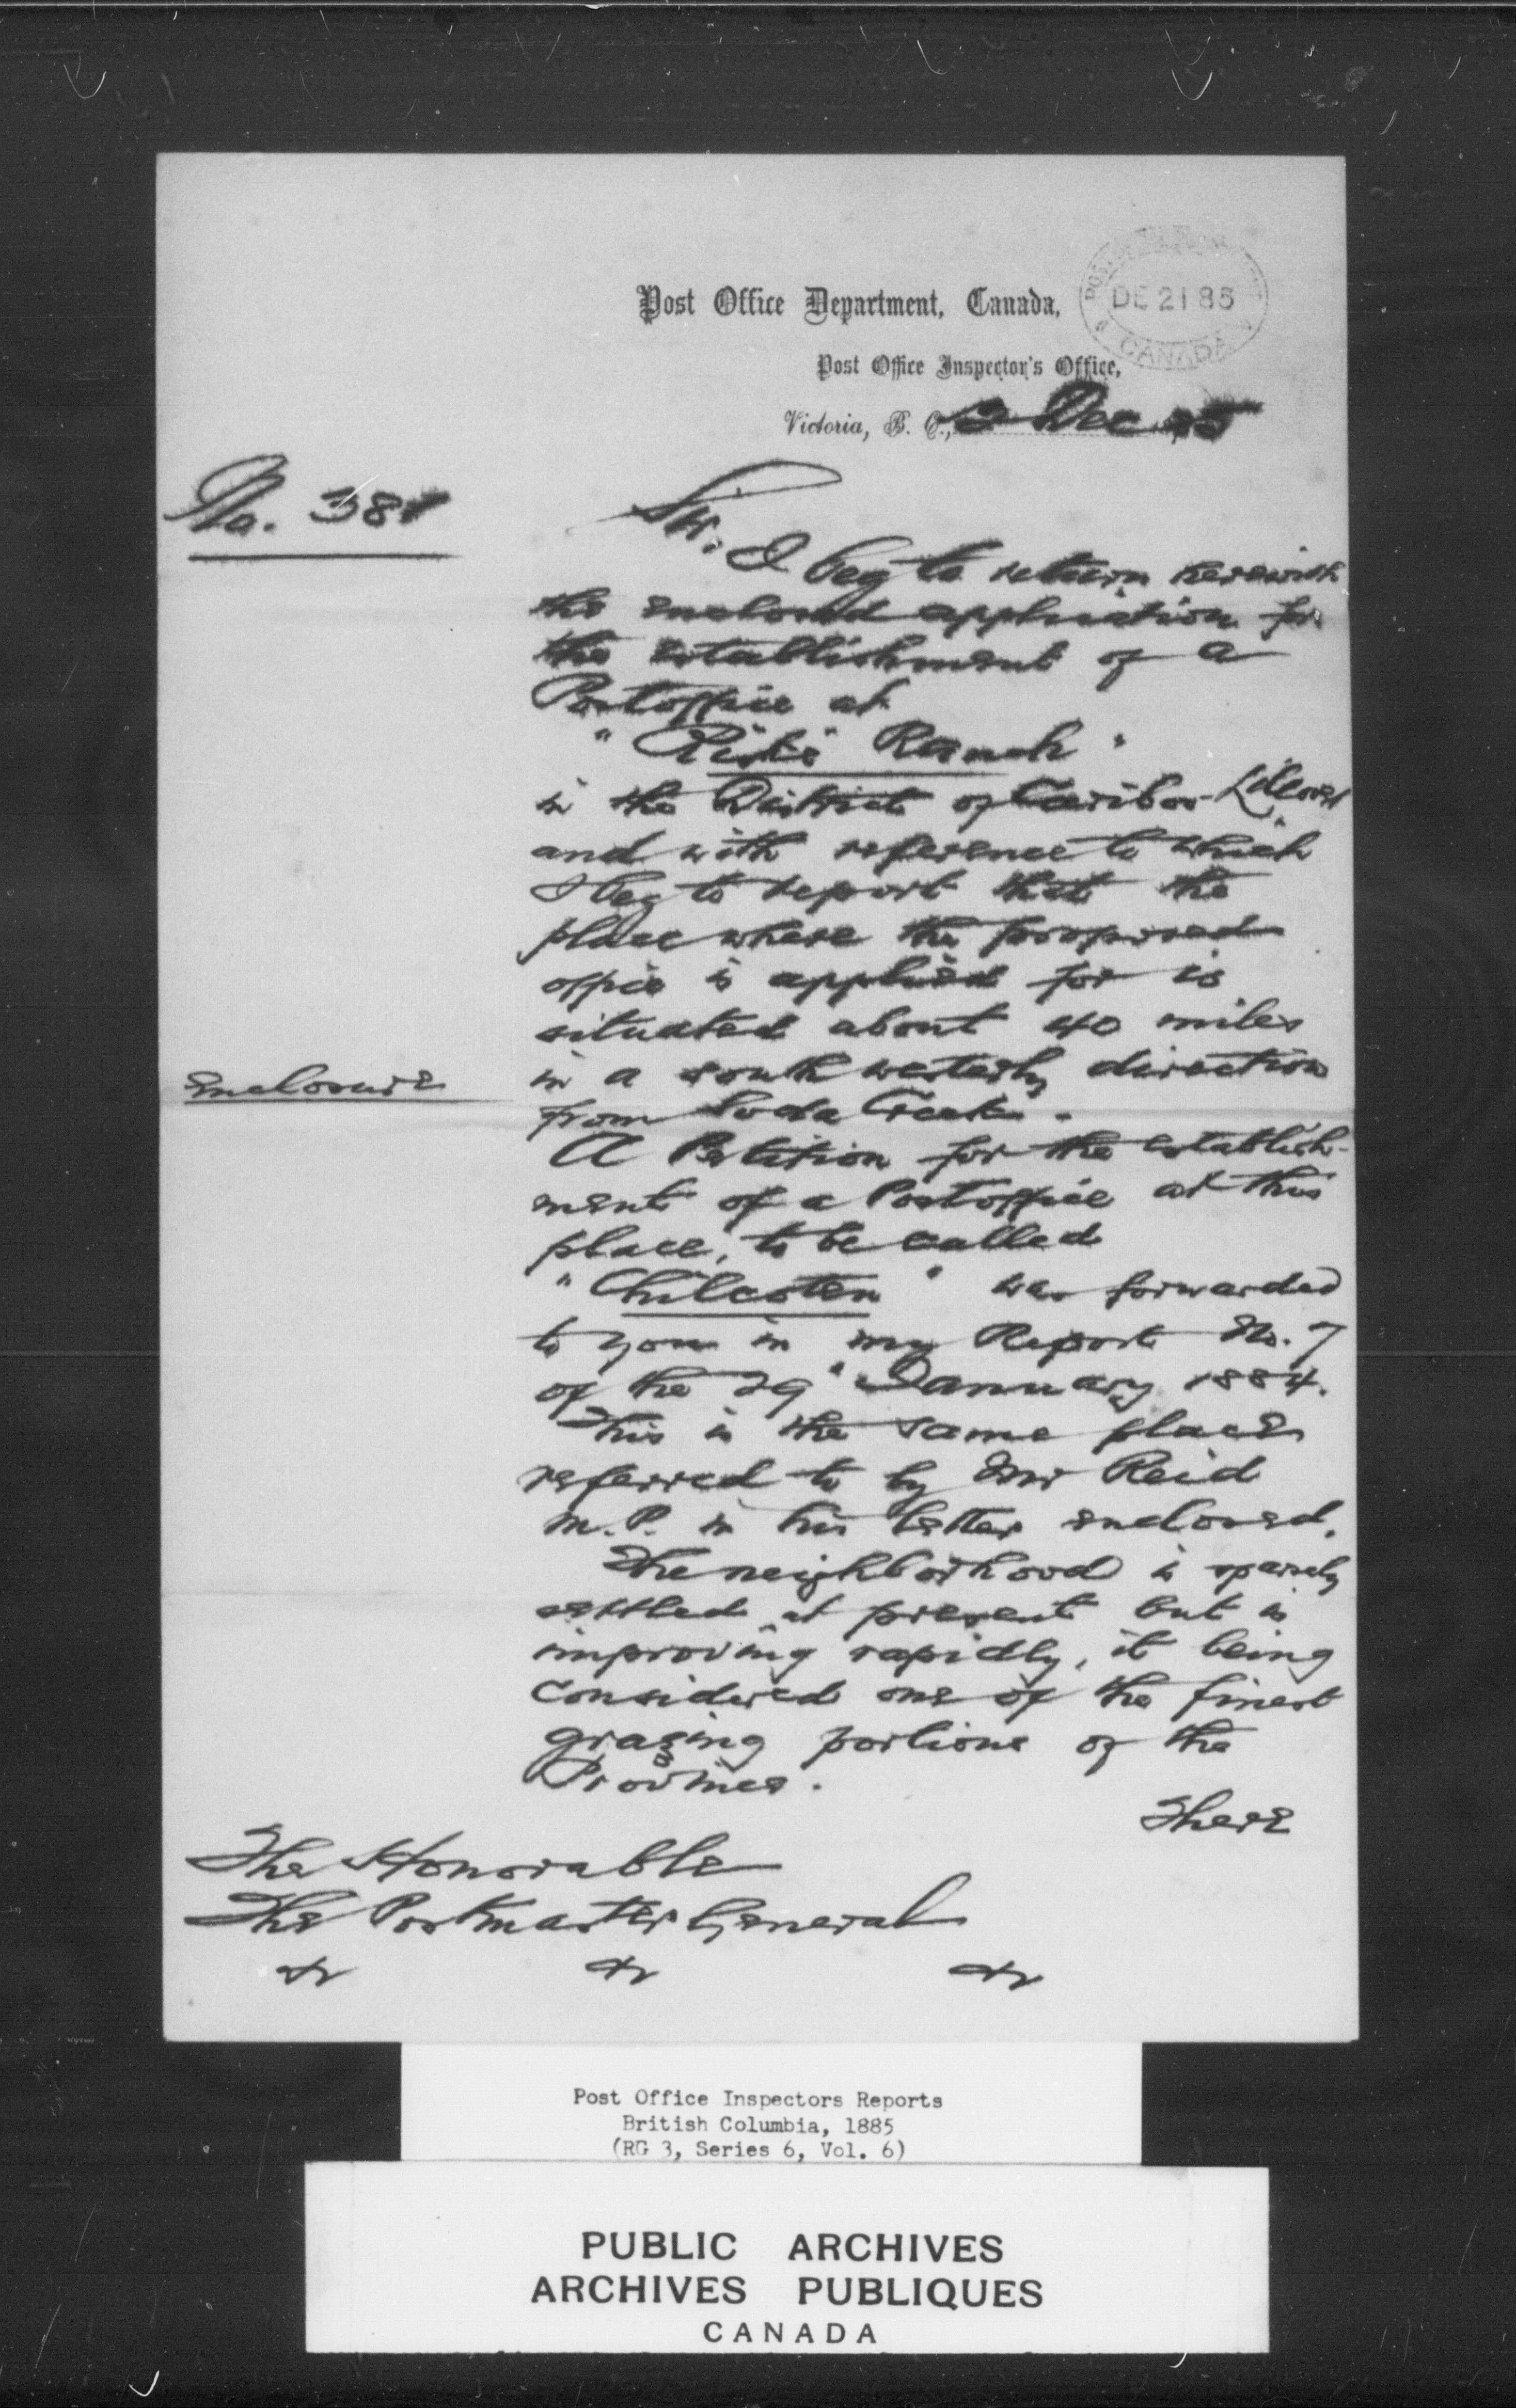 Post Office Department, Canada,
DE 21 85
CANADA
Post Office Inspector's Office,
Victoria, B. C., 2 Dec 85
No. 381
Sir.
I beg to return herewith
the enclosed application for
the establishment of a
Postoffice at
" Ranch "
in the District of Cariboo
and with reference to which
I beg to report that the
place where the proposed
office is applied for is
situated about 40 miles
Enclosure
in a south westerly direction
from Soda Creek.
A Petition for the establish-
ment of a Postoffice at this
place, to be called
"Chilcoten" was forwarded
to you in my Report No. 7
of the 29" January 1884.
This is the same place
referred to by Mr Reid
M.P. in his letter enclosed.
The neighborhood is sparsely
settled at present but is
improving rapidly, it being
considered one of the finest
grazing portions of the
Province.
There
The Honorable
The Postmaster General
&c &c &c
Post Office Inspectors Reports
British Columbia, 1885
(RG 3, Series 6, Vol. 6)
PUBLIC ARCHIVES
ARCHIVES PUBLIQUES
CANADA